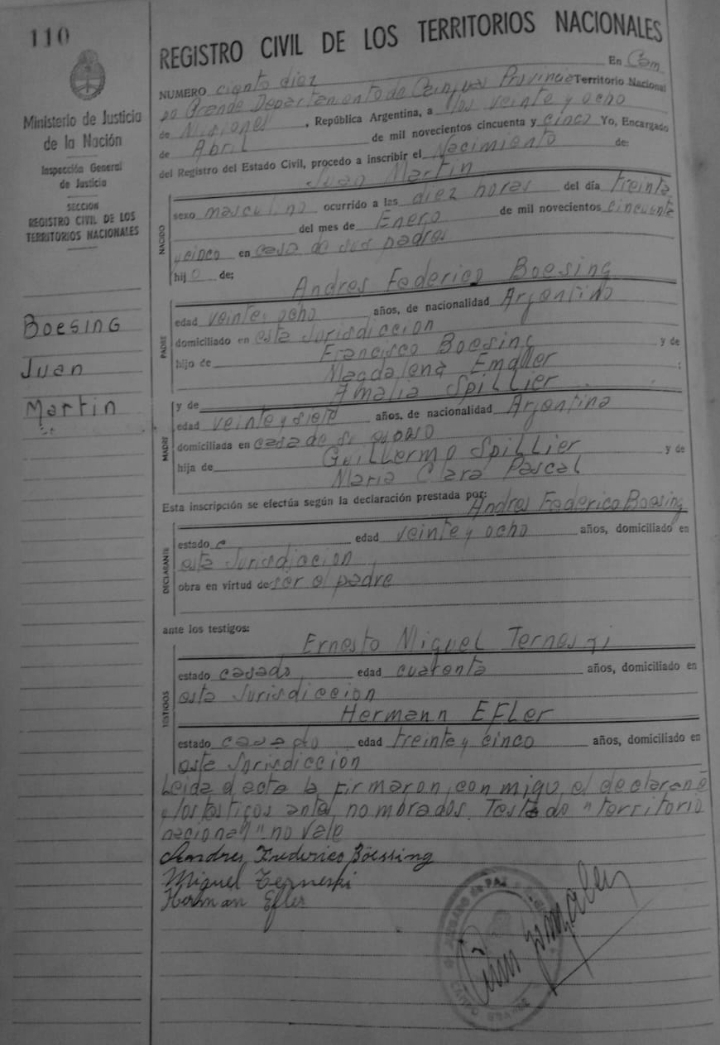 110
Ministerio de Justicia
de la Nación
Inspección General
de Justicia
SECCION
REGISTRO CIVIL DE LOS
TERRITORIOS NACIONALES
Boesing
Juan
Martin
REGISTRO CIVIL DE LOS TERRITORIOS NACIONALES
NUMERO ciento diez En Cam
po Grande Departamento de Cainguas Provincia Territorio Nacional
de Misiones, República Argentina, a los veinte y ocho
de Abril de mil novecientos cincuenta y cinco Yo, Encargado
del Registro del Estado Civil, procedo a inscribir el Nacimiento de:
Juan Martin
NACIDO
sexo masculino ocurrido a las diez horas del día treinta
del mes de Enero de mil novecientos cincuenta
y cinco en casa de sus padres
hijo de:
Andres Federico Boesing
PADRE
edad veinte y ocho años, de nacionalidad Argentino
domiciliado en esta Jurisdiccion
hijo de Francisco Boesing y de
Magdalena :
Amalia Spillier
MADRE
y de
edad veinte y siete años, de nacionalidad Argentina
domiciliada en casa de su esposo
hija de Guillermo Spillier y de
Maria Clara Pascal
Esta inscripción se efectúa según la declaración prestada por: Andres Federico Boesing
DECLARANTE
estado c edad veinte y ocho años, domiciliado en
esta Jurisdiccion
obra en virtud de ser el padre
ante los testigos:
Ernesto Miguel
TESTIGOS
estado casado edad cuarenta años, domiciliado en
esta Jurisdiccion
Hermann Efler
estado casado edad treinte y cinco años, domiciliado en
esta Jurisdiccion
Leida el acta la firmaron con migo el declarane
y los testigos antes nombrados. Testado "territorio
nacional" no vale
Andres Frederico Böessing
Miguel Terneski
Herman Efler
JUZGADO DE PAZ
CAMPO GRANDE